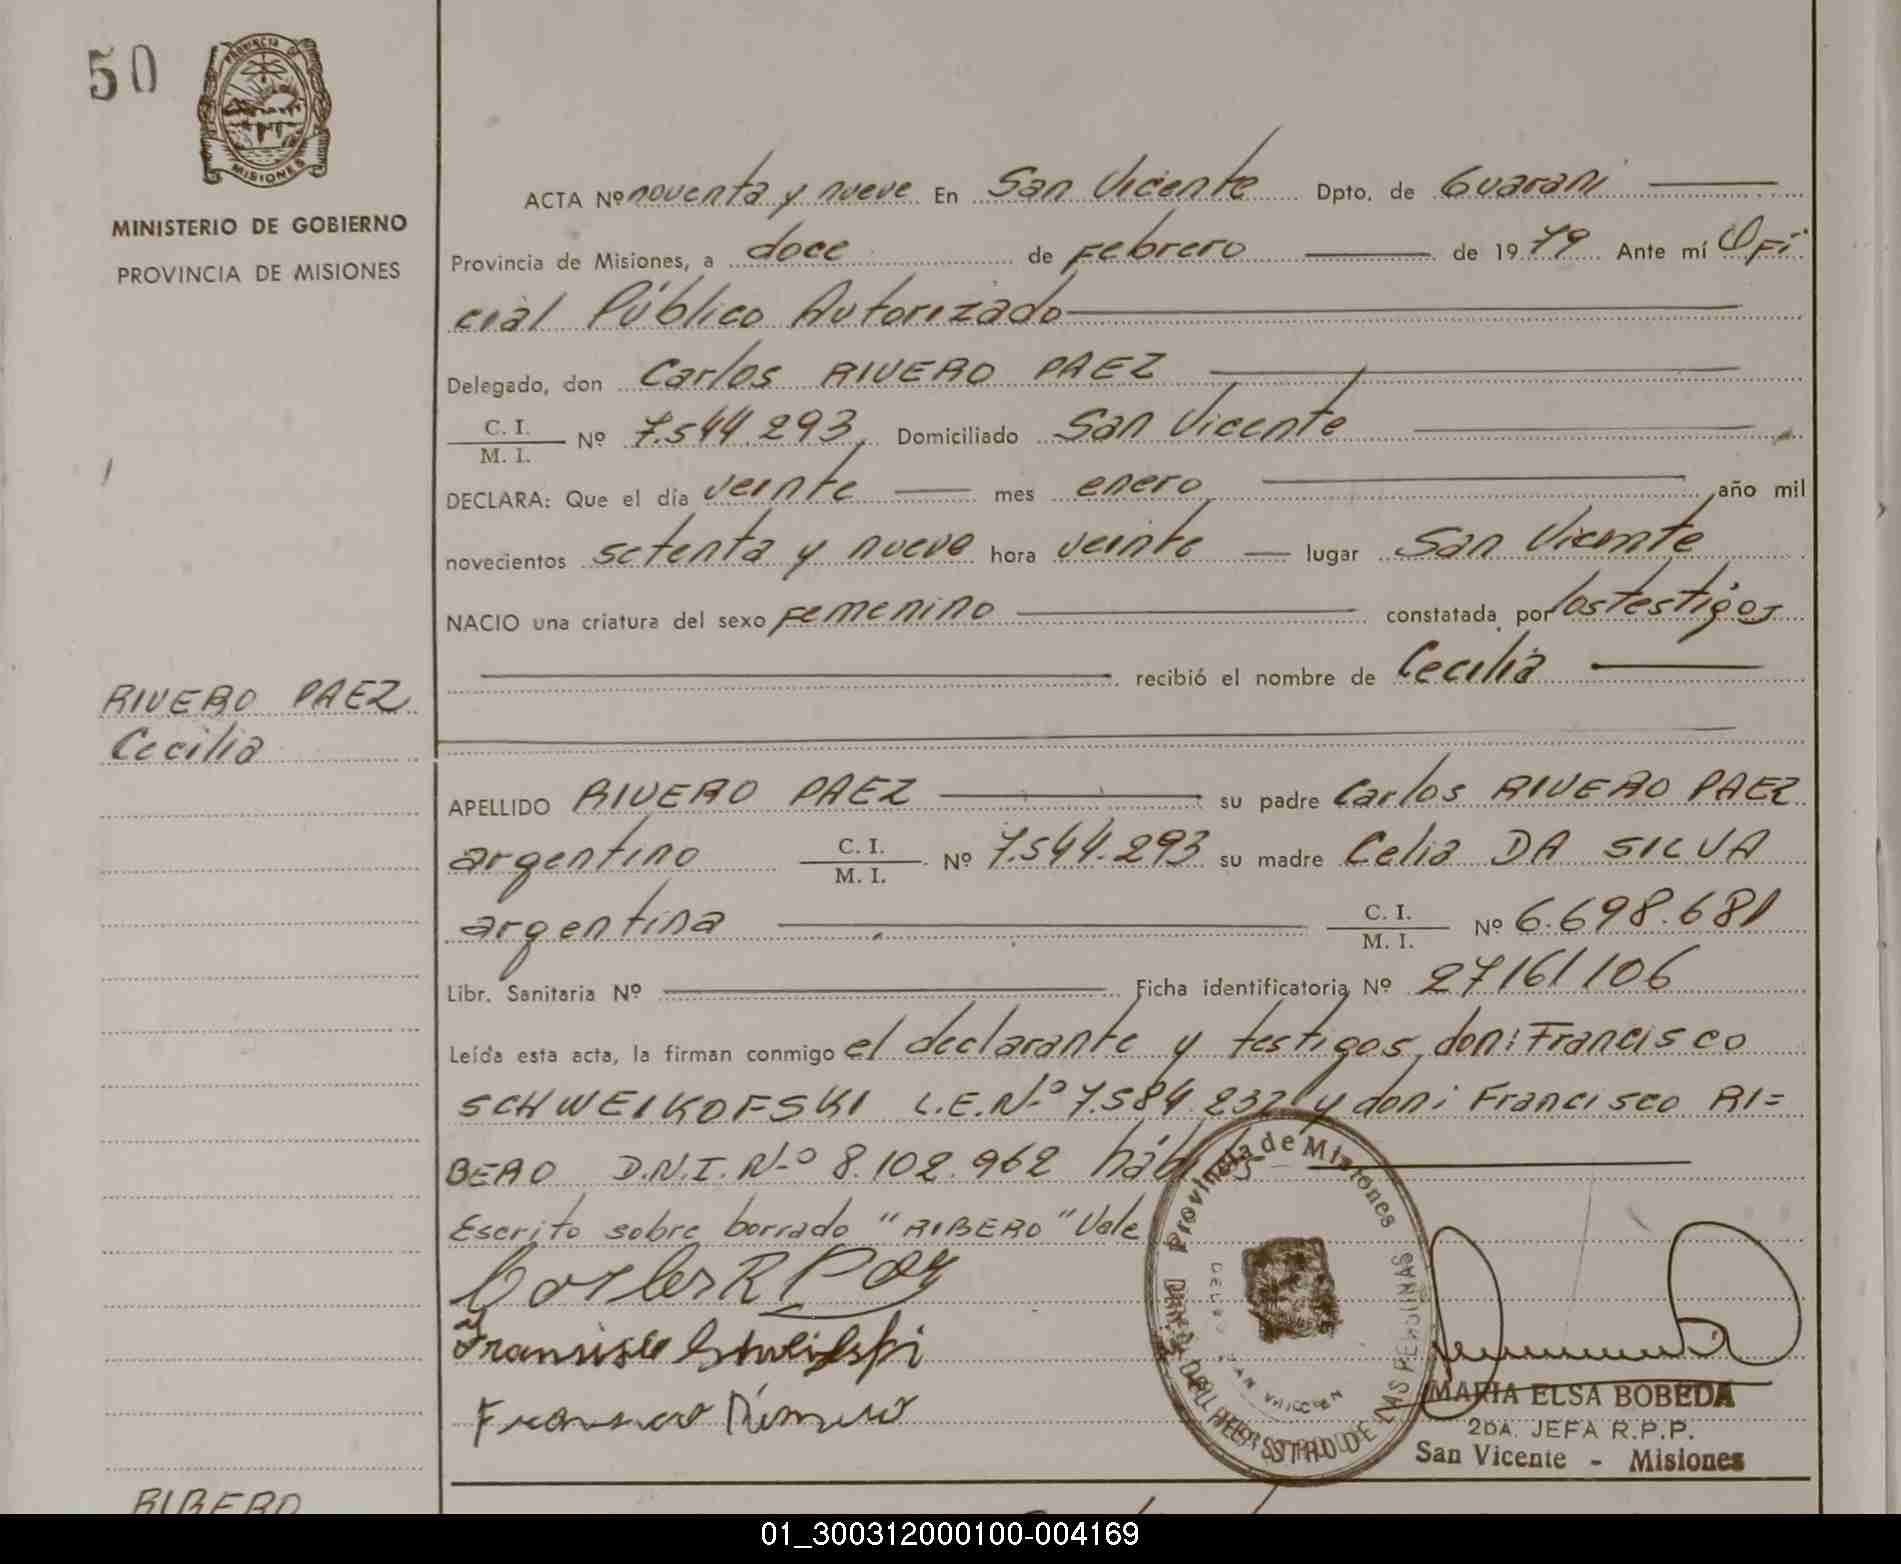 50
PROVINCIA DE
MISIONES
MINISTERIO DE GOBIERNO
PROVINCIA DE MISIONES
RIVERO PAEZ
Cecilia
ACTA Nº noventa y nueve En San Vicente Dpto. de Guarani
Provincia de Misiones, a doce de Febrero de 1979 Ante mí Ofi
cial Público Autorizado
Delegado, don Carlos RIVERO PAEZ
C. I.
M. I. Nº 7.544.293, Domiciliado San Vicente
DECLARA: Que el día veinte mes enero, año mil
novecientos setenta y nueve hora veinte lugar San Vicente
NACIO una criatura del sexo Femenino constatada por los testigos
recibió el nombre de Cecilia
APELLIDO RIVERO PAEZ su padre Carlos RIVERO PAEZ
argentino C. I. M. I. Nº 7.544.293 su madre Celia DA SILVA
argentina C. I. M. I. Nº 6.698.681
Libr. Sanitaria Nº Ficha identificatoria Nº 27161106
Leída esta acta, la firman conmigo el declarante y testigos, don: Francisco
SCHWEIKOFSKI L.E.Nº 7.584.232 y don: Francisco RI=
BERO D.N.I. Nº 8.102.962 háb
Escrito sobre borrado "RIBERO" Vale
Carlos R Paez
Provincia de Misiones
DE LAS PERSONAS
MARIA ELSA BOBEDA
2DA. JEFA R.P.P.
San Vicente - Misiones
RIBERO
01_300312000100-004169